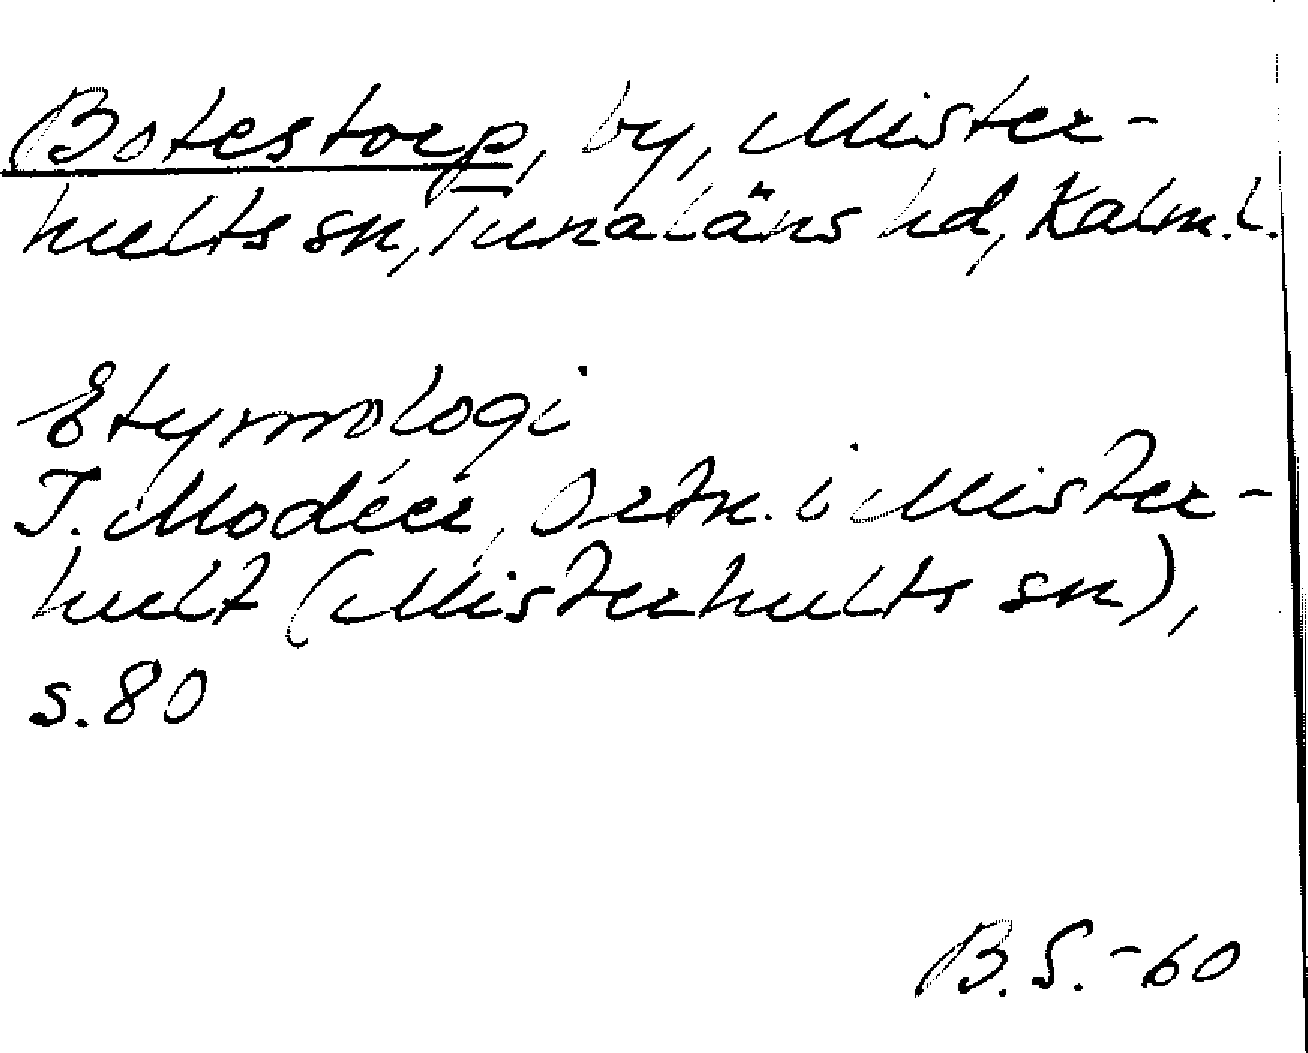 Botestorp, by, Mister-
hults sn, Tunaläns hd, Kalm. l.
Etymologi
I. Modéer, Ortn. i Mister-
hult (Misterhults sn),
s. 80
B.S. -60